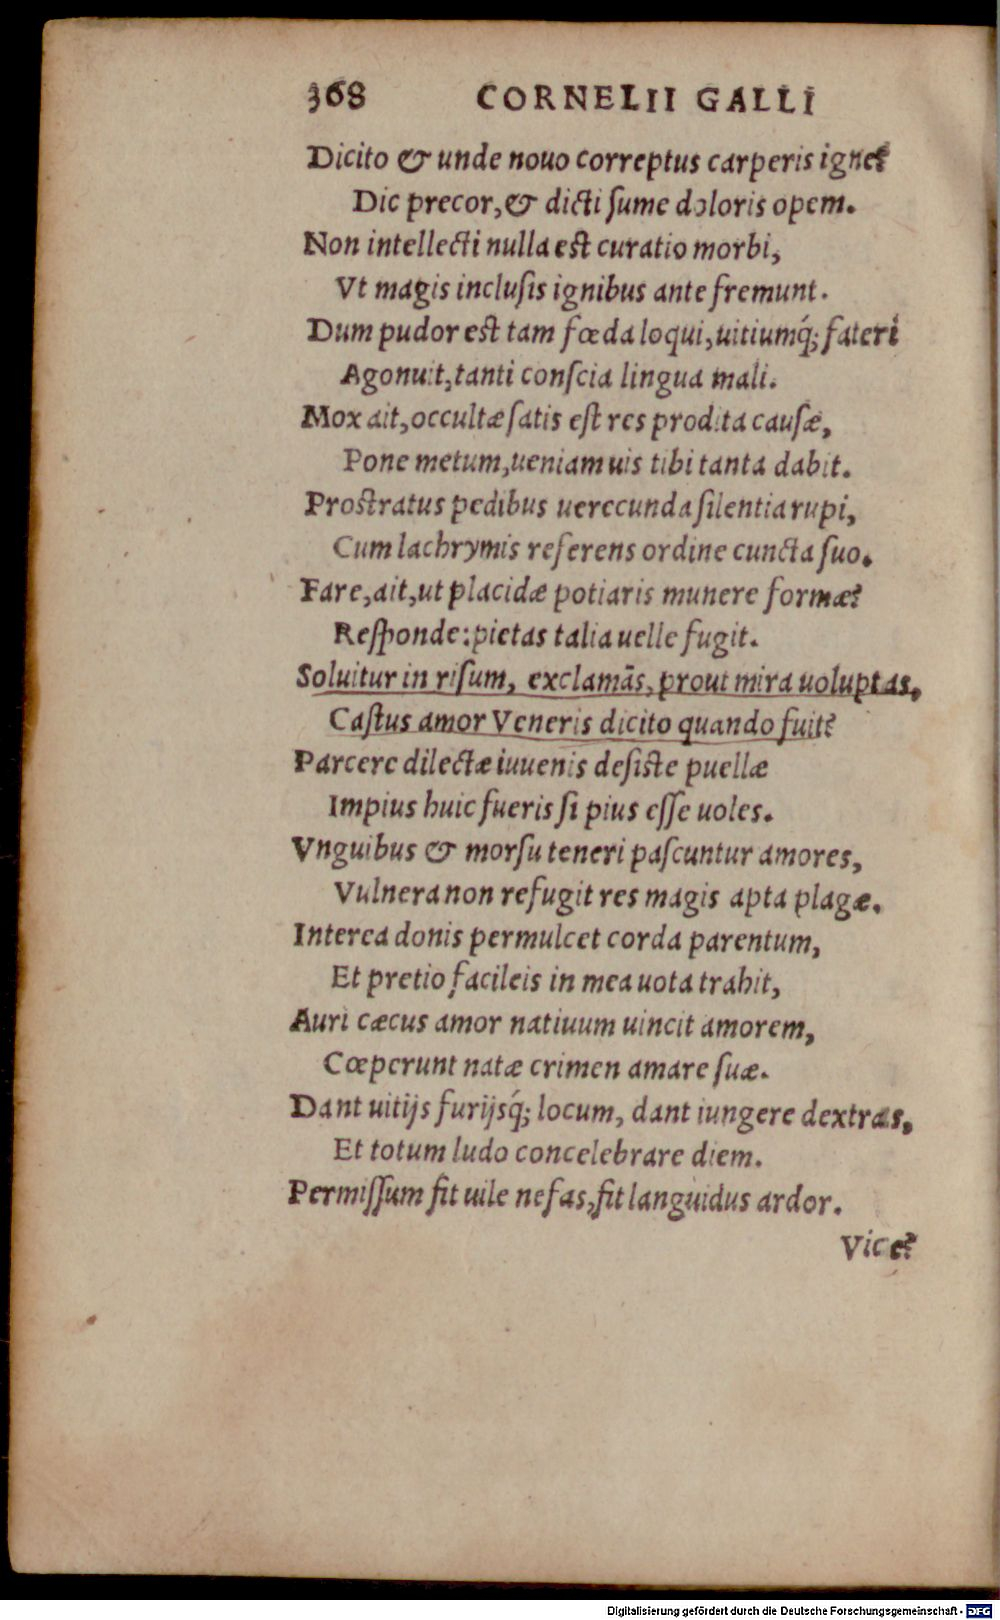 368 CORNELII GALLI
Dicito & unde nouo correptus carperis igne?
Dic precor, & dicti ſume doloris opem.
Non intellecti nulla est curatio morbi,
Vt magis incluſis ignibus ante fremunt.
Dum pudor est tam fœda loqui, uitiumq́; fateri
Agonuit, tanti conſcia lingua mali.
Mox ait, occultæ ſatis eſt res prodita cauſæ,
Pone metum, ueniam uis tibi tanta dabit.
Prostratus pedibus uerecunda ſilentia rupi,
Cum lachrymis referens ordine cuncta ſuo.
Fare, ait, ut placidæ potiaris munere formæ?
Reſponde: pietas talia uelle fugit.
Soluitur in riſum, exclamãs, prout mira uoluptas,
Caſtus amor Veneris dicito quando fuit?
Parcere dilectæ iuuenis deſiſte puellæ
Impius huic fueris ſi pius eſſe uoles.
Vnguibus & morſu teneri paſcuntur amores,
Vulnera non refugit res magis apta plagæ.
Interea donis permulcet corda parentum,
Et pretio facileis in mea uota trahit,
Auri cæcus amor natiuum uincit amorem,
Cœperunt natæ crimen amare ſuæ.
Dant uitijs furijsq́; locum, dant iungere dextras,
Et totum ludo concelebrare diem.
Permiſſum fit uile nefas, fit languidus ardor.
Vice?
Digitalisierung gefördert durch die Deutsche Forschungsgemeinschaft - DFG